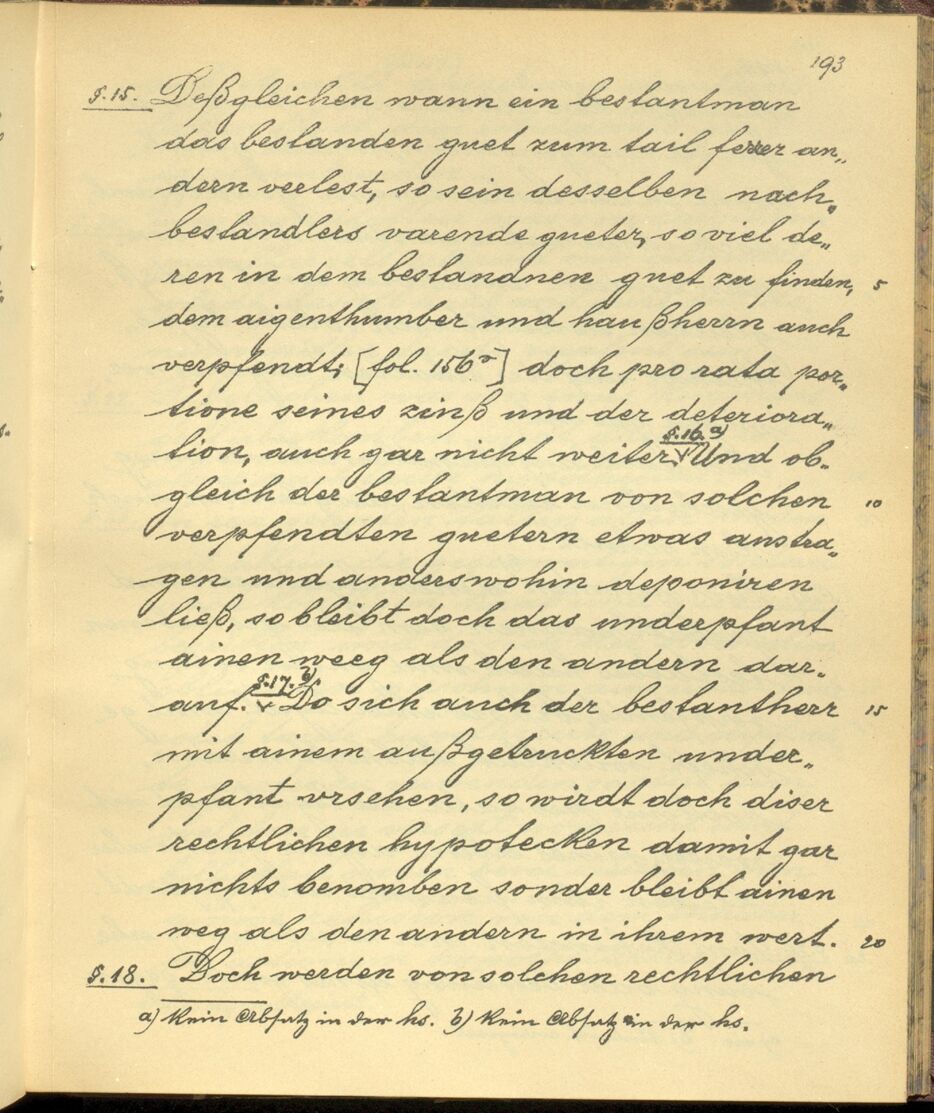 193
§.15. Deßgleichen wann ein bestantman
das bestanden guet zum tail ferrer an„
dern verlest, so sein desselben nach„
bestandlers varende gueter, so viel de„
ren in dem bestandnen guet zu finden, 5
dem aigenthumber und haußherrn auch
verpfendt; [fol. 156ᵛ] doch pro rata por„
tione seines zinß und der deteriora„
tion, auch gar nicht weiter. §.16. a) Und ob„
gleich der bestantman von solchen 10
verpfendten guetern etwas austra„
gen und anderswohin deponiren
ließ, so bleibt doch das underpfant
ainen weeg als den andern dar„
auf. §.17. b) Do sich auch der bestantherr 15
mit ainem außgetruckten under„
pfant vrsehen, so wirdt doch diser
rechtlichen hypotecken damit gar
nichts benomben sonder bleibt ainen
weg als den andern in ihrem wert. 20
§.18. Doch werden von solchen rechtlichen
a) Kein Absatz in der hs. b) Kein Absatz in der hs.